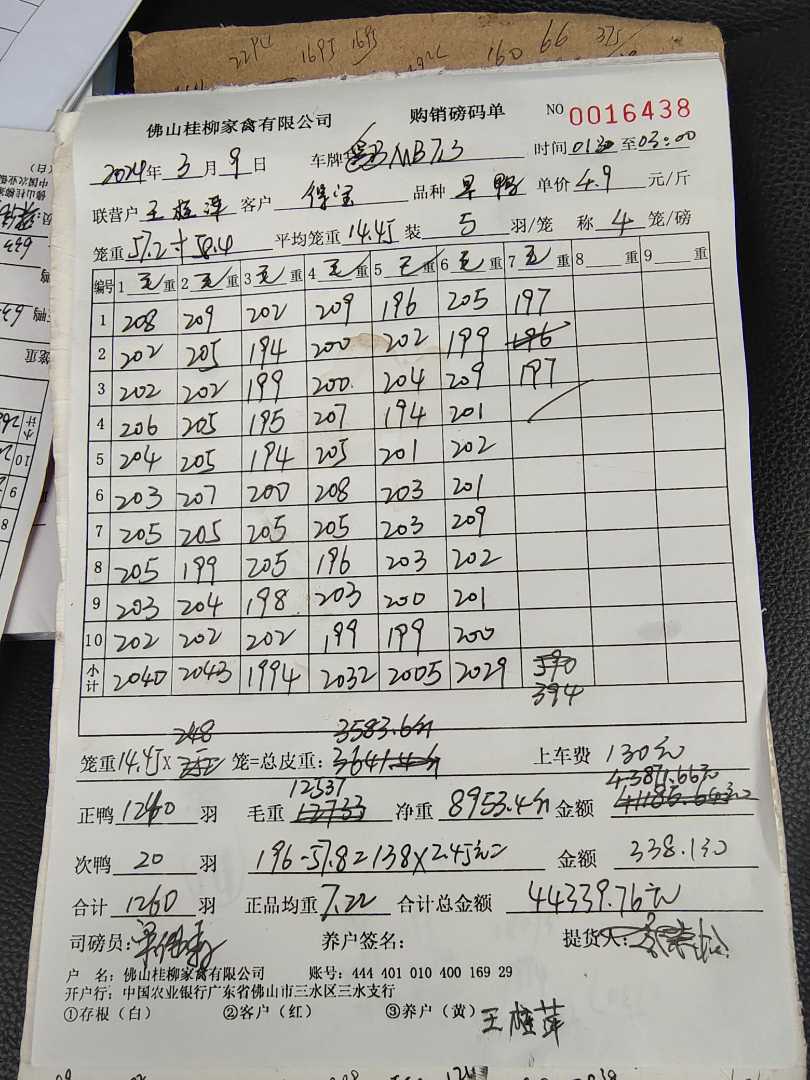 佛山桂柳家禽有限公司 购销磅码单 NO 0016438
2024年 3 月 9 日 车牌 MB7.3 时间 0130 至 03:00
联营户 王桂萍 客户 得宝 品种 旱鸭 单价 4.9 元/斤
笼重 57.2 + 58.4 平均笼重 14.45 装 5 羽/笼 称 4 笼/磅
编号 1 毛重 2 毛重 3 毛重 4 毛重 5 毛重 6 毛重 7 毛重 8 重 9 重
1 208 209 202 209 196 205 197
2 202 205 194 200 202 199 196
3 202 202 199 200 204 209 197
4 206 205 195 207 194 201
5 204 205 194 205 201 202
6 203 207 200 208 203 201
7 205 205 205 205 203 209
8 205 199 205 196 203 202
9 203 204 198 203 200 201
10 202 202 202 199 199 200
小计 2040 2043 1994 2032 2005 2029 590
394
248 3583.6斤
笼重 14.45 × 笼=总皮重: 3641.4斤 上车费 130元
12537 43871.66元
正鸭 1240 羽 毛重 12733 净重 8953.4斤 金额
次鸭 20 羽 196-57.8=138×2.45元= 金额 338.1元
合计 1260 羽 正品均重 7.22 合计总金额 44339.76元
司磅员: 养户签名: 提货人:
户 名: 佛山桂柳家禽有限公司 账号: 444 401 010 400 169 29
开户行: 中国农业银行广东省佛山市三水区三水支行
①存根(白) ②客户(红) ③养户(黄) 王桂萍